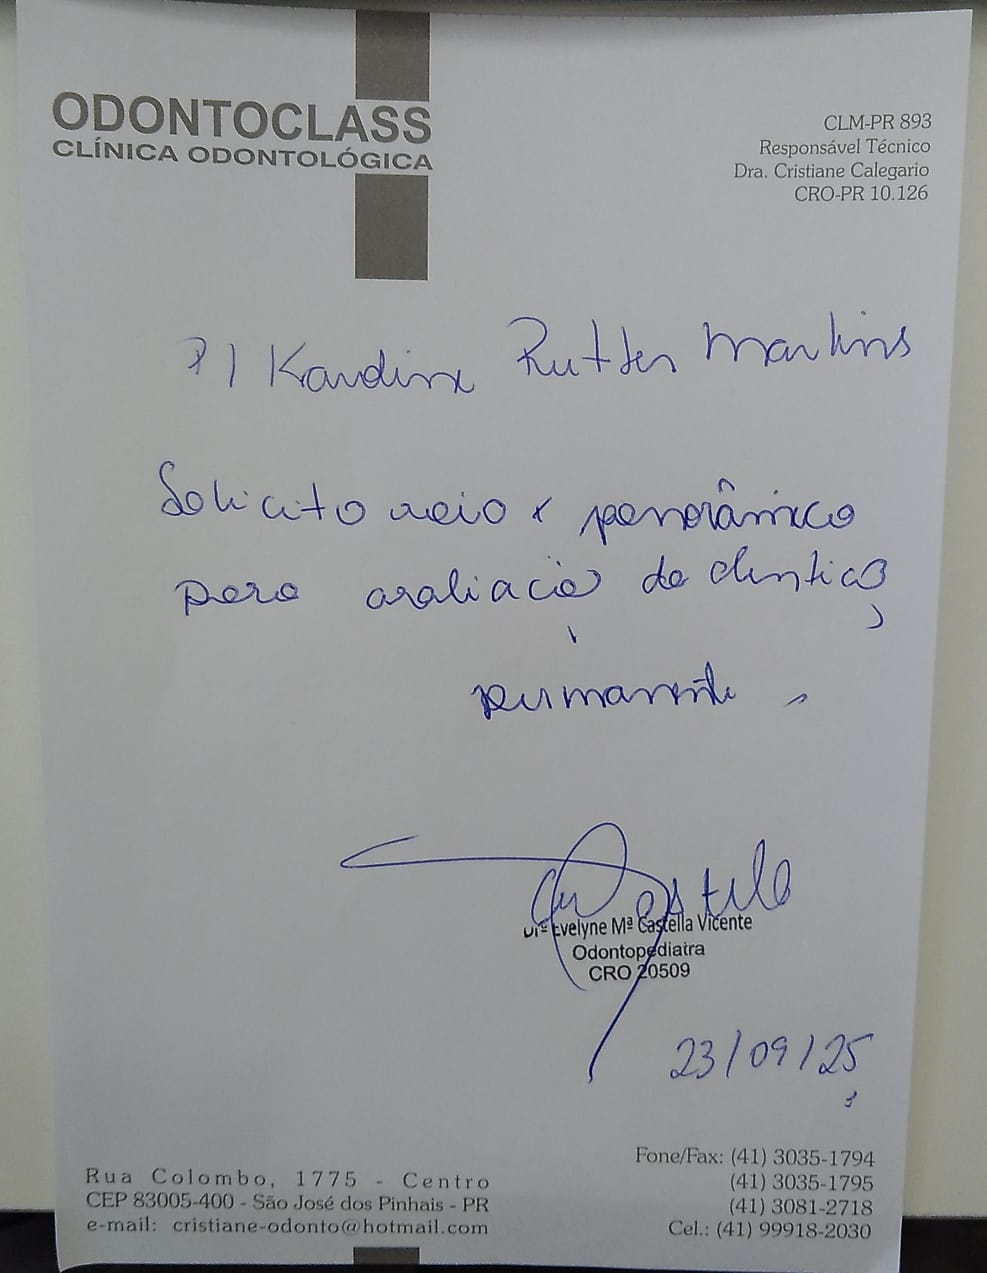 ODONTOCLASS
CLÍNICA ODONTOLÓGICA
CLM-PR 893
Responsável Técnico
Dra. Cristiane Calegario
CRO-PR 10.126
P/ Rutten Martins
Solicito raio x panorâmico
para avaliação da dentição
permanente
Drª Evelyne Mª Castella Vicente
Odontopediatra
CRO 20509
23/09/25
Rua Colombo, 1775 - Centro
CEP 83005-400 - São José dos Pinhais - PR
e-mail: cristiane-odonto@hotmail.com
Fone/Fax: (41) 3035-1794
(41) 3035-1795
(41) 3081-2718
Cel.: (41) 99918-2030